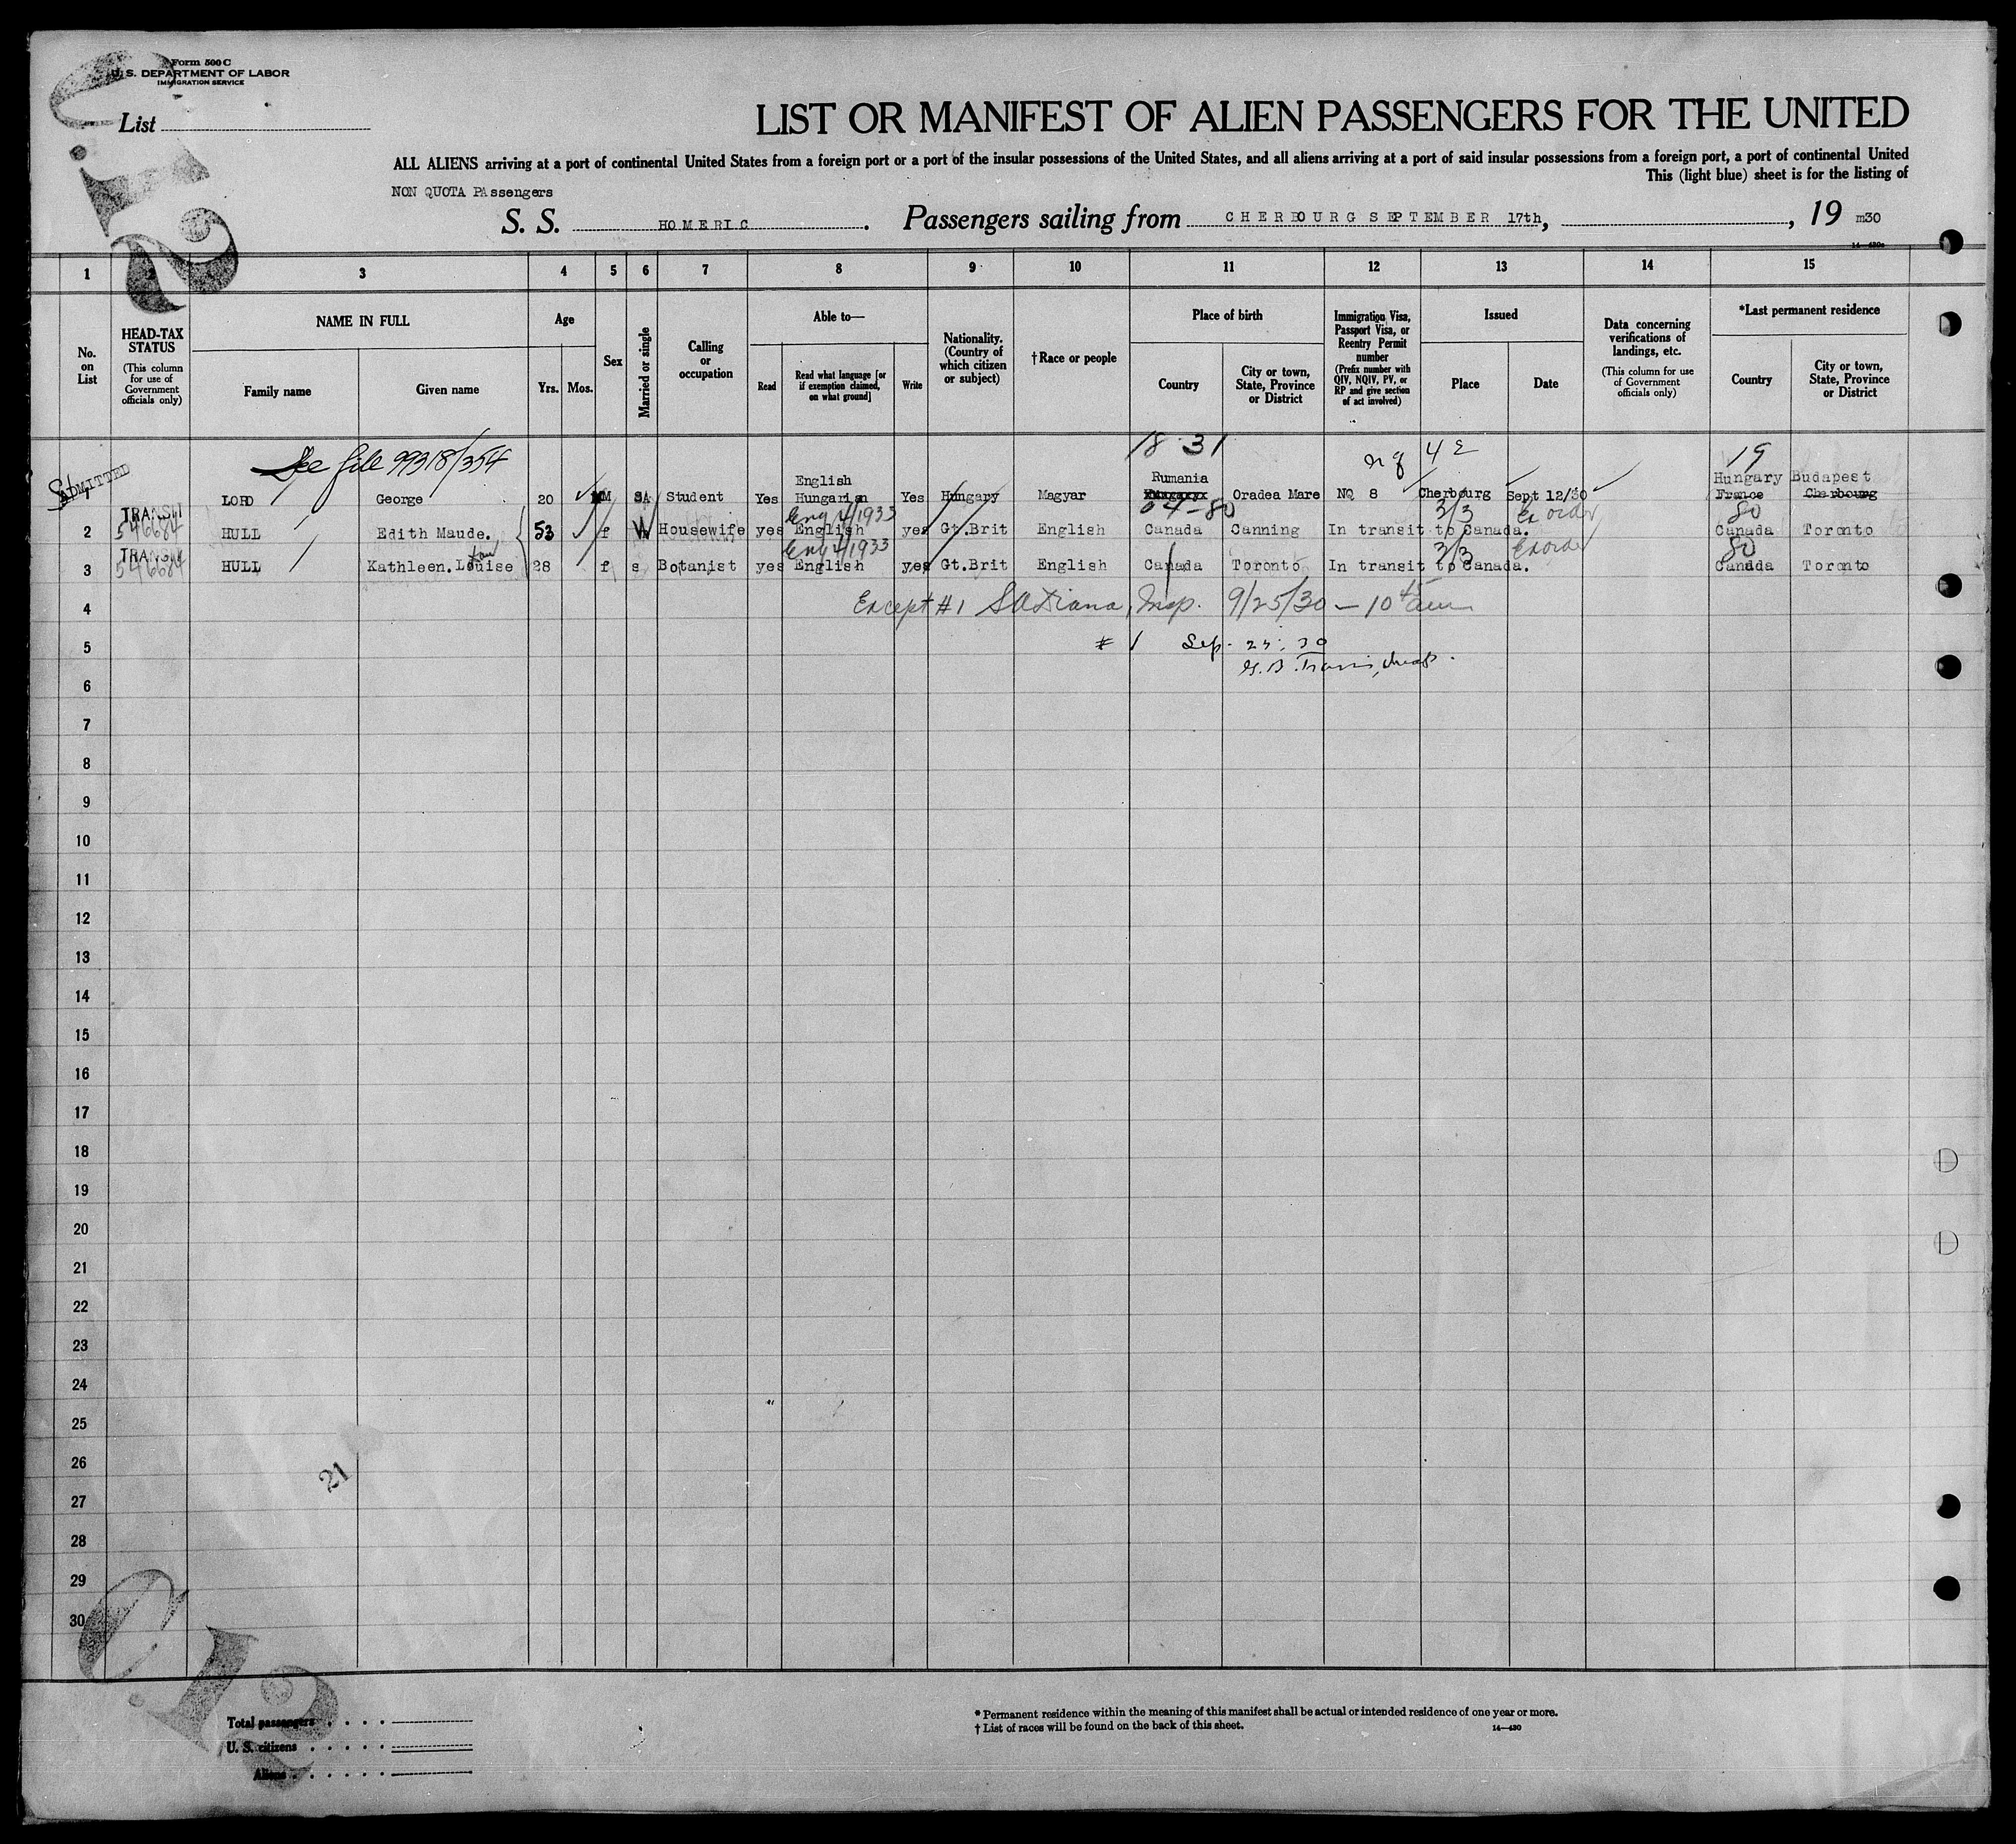 Form 500 C
U. S. DEPARTMENT OF LABOR
IMMIGRATION SERVICE
List
LIST OR MANIFEST OF ALIEN PASSENGERS FOR THE UNITED
ALL ALIENS arriving at a port of continental United States from a foreign port or a port of the insular possessions of the United States, and all aliens arriving at a port of said insular possessions from a foreign port, a port of continental United
This (light blue) sheet is for the listing of
NON QUOTA PAssengers
S. S. HOMERIC. Passengers sailing from CHERBOURG SEPTEMBER 17th, , 19 m30
14—430a
1 2 3 4 5 6 7 8 9 10 11 12 13 14 15
No. on List
HEAD-TAX STATUS
(This column for use of Government officials only)
NAME IN FULL
Family name
Given name
Age
Yrs. Mos.
Sex
Married or single
Calling or occupation
Able to—
Read
Read what language [or if exemption claimed, on what ground]
Write
Nationality. (Country of which citizen or subject)
† Race or people
Place of birth
Country
City or town, State, Province or District
Immigration Visa, Passport Visa, or Reentry Permit number
(Prefix number with QIV, NQIV, PV, or RP and give section of act involved)
Issued
Place
Date
Data concerning verifications of landings, etc.
(This column for use of Government officials only)
*Last permanent residence
Country
City or town, State, Province or District
See file 99318/354
18 31
nq 4 E
19
ADMITTED
English
Rumania
Hungary Budapest
1 LORD George 20 M S Student Yes Hungarian Yes Hungary Magyar Oradea Mare NQ 8 Cherbourg Sept 12/30 France Cherbourg
TRANSIT
Eng 4/1933
04-80
3/3 Ex order
80
2 546684 HULL Edith Maude. 53 f W Housewife yes English yes Gt.Brit English Canada Canning In transit to Canada. Canada Toronto
TRANSIT
Eng 4/1933
3/3 Ex order
80
3 546684 HULL Kathleen. Louise 28 f s Botanist yes English yes Gt.Brit English Canada Toronto In transit to Canada. Canada Toronto
4 Except #1 Insp. 9/25/30 — 10 am
5 # 1 Sep. 25, 30
6
7
8
9
10
11
12
13
14
15
16
17
18
19
20
21
22
23
24
25
26
21
27
28
29
30
Total passengers
U. S. citizens
Aliens
* Permanent residence within the meaning of this manifest shall be actual or intended residence of one year or more.
† List of races will be found on the back of this sheet.
14—430